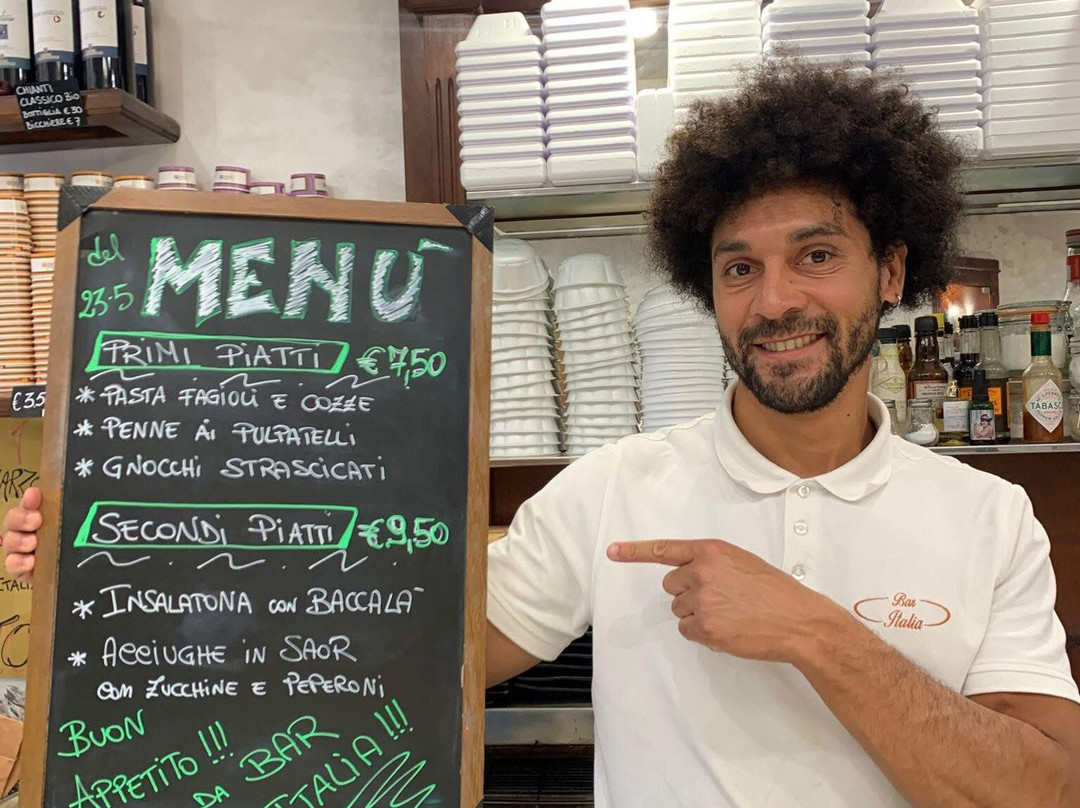 CHIANTI
CLASSICO Bio
BOTTIGLIA €30
BICCHIERE €7
del
23·5
MENÙ
PRIMI PIATTI €7,50
* PASTA FAGIOLI E COZZE
* PENNE Ai PULPATELLI
* GNOCCHI STRASCICATI
SECONDI PIATTI €9,50
* INSALATONA con BACCALÀ
* ACCIUGHE IN SAOR
CON ZUCCHINE E PEPERONI
BUON
APPETITO!!!
DA BAR
ITALIA!!!
€3.5
Bar
Italia
TABASC